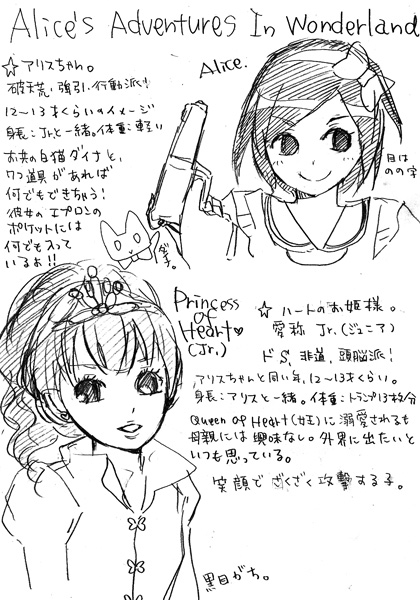 Alice's Adventures In Wonderland
☆アリスちゃん。
破天荒・強引・行動派!
12〜13才くらいのイメージ
身長:Jrと一緒。体重:軽い
お共の白猫ダイナと、
七つ道具があれば
何でもできちゃう!
彼女のエプロンの
ポケットには
何でも入って
いるよ!!
Alice.
目は
のの字
ダイナ。
Princess
of
Heart♥
(Jr.)
☆ハートのお姫様。
愛称 Jr.(ジュニア)
ドS、非道、頭脳派!
アリスちゃんと同い年、12〜13才くらい。
身長:アリスと一緒。体重:トランプ13枚分
Queen of Heart(女王)に溺愛されるも
母親には興味なし。外界に出たいと
いつも思っている。
笑顔でざくざく攻撃する子。
黒目がち。